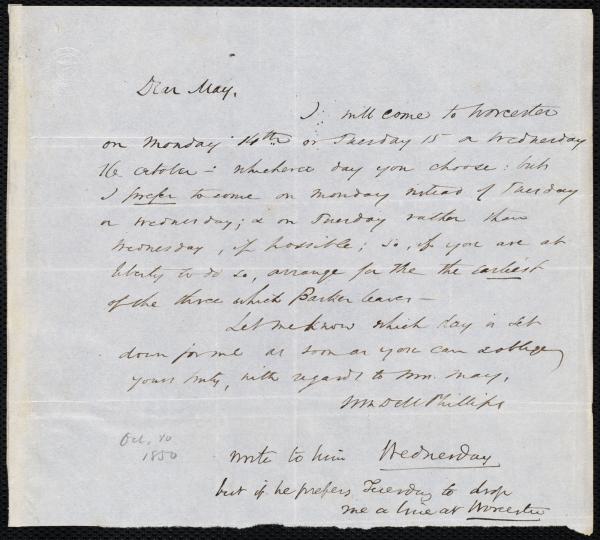 Dear May,
I will come to Worcester
on Monday 14th or Tuesday 15 or Wednesday
16 October - whichever day you choose: but
I prefer to come on Monday instead of Tuesday
or Wednesday; & on Tuesday rather than
Wednesday, if possible; so, if you are at
liberty to do so, arrange for the the earliest
of the three which Parker leaves -
Let me know which day is set
down for me as soon as you can & oblige
yours truly, with regards to Mrs. May,
Wendell Phillips
Oct. 10
1850
write to him Wednesday
but if he prefers Tuesday to drop
me a line at Worcester